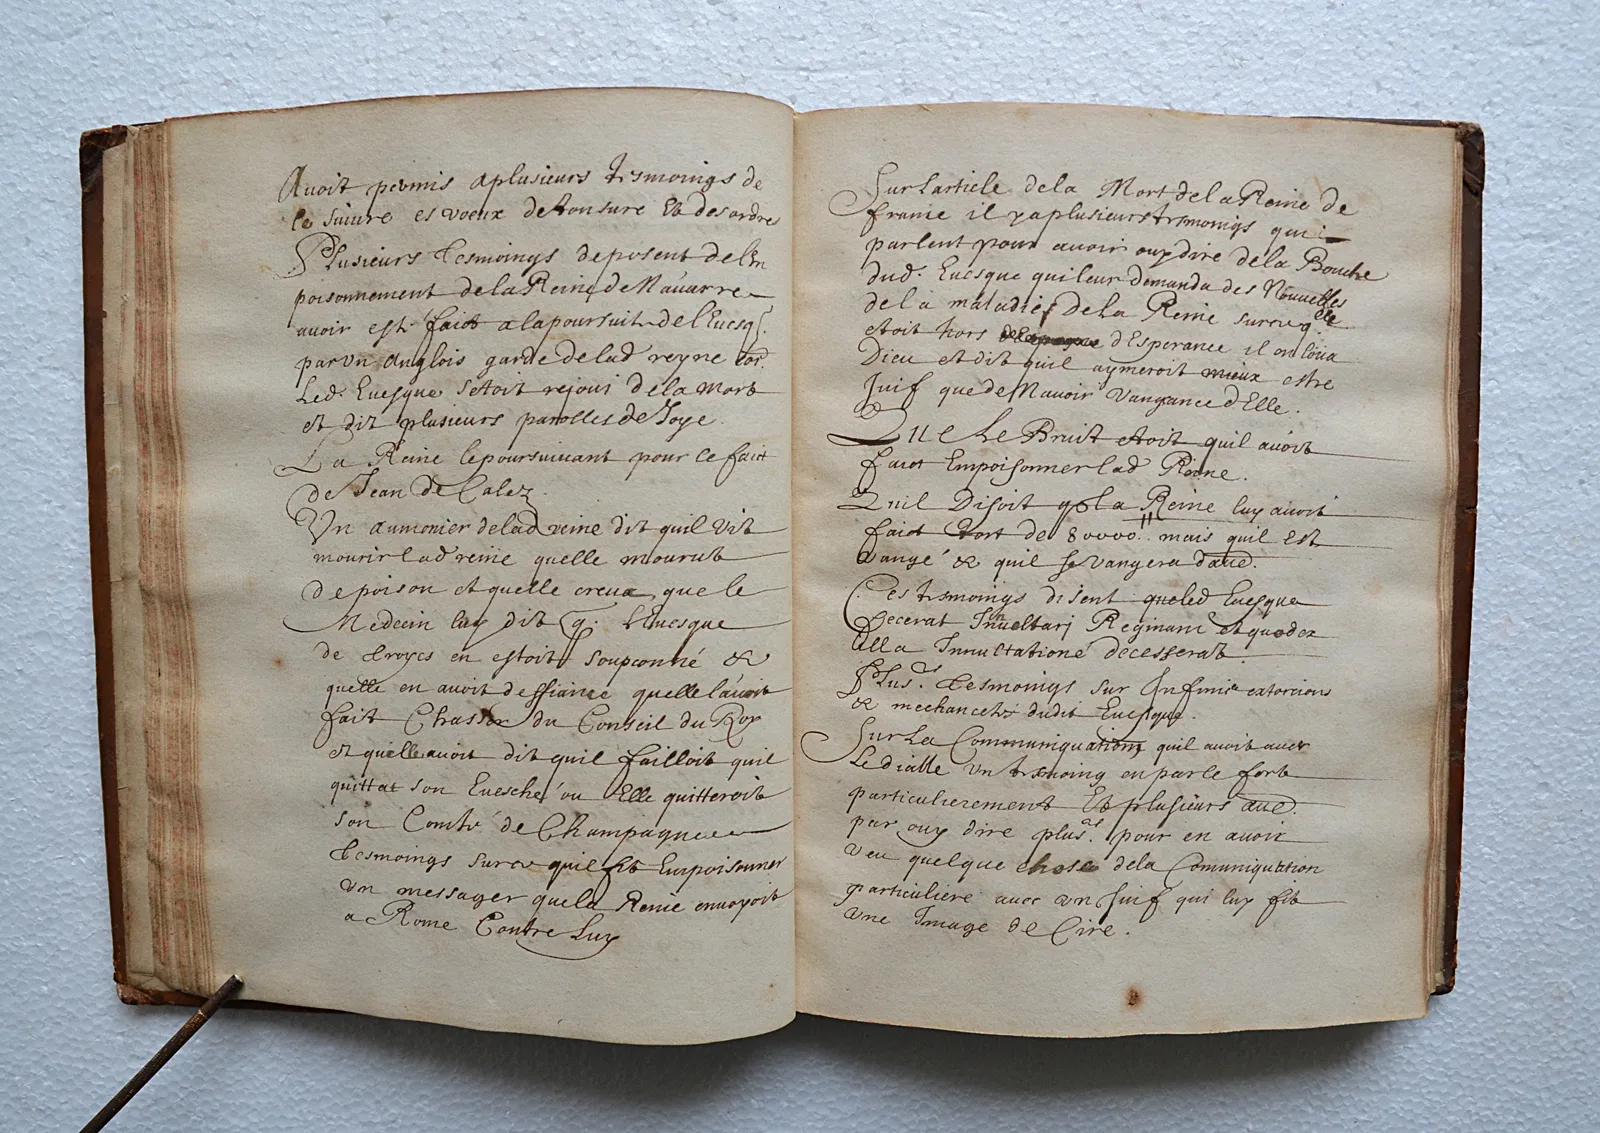 Avoit permis a plusieurs tesmoings de
le suivre es voeux de tonsure Et des ordre
Plusieurs tesmoings deposent de l'En
poisonnement de la Reine de Navarre
avoir est faict a la poursuit de l'Evesq.
par un anglois garde de lad reyne
Led. Evesque s'estoit rejoui de la mort
et dit plusieurs parolles de Joye.
La Reine le poursuivant pour ce faict
de Jean de Calez.
Un aumonier de lad reine dit quil vit
mourir lad reine quelle mourut
de poison et quelle creut que le
Medecin luy dit q. l'Evesque
de troyes en estoit soupconné &
quelle en avoit deffiance quelle l'avoit
fait Chasser du Conseil du Roy
et quelle avoit dit quil failloit quil
quittat son Evesché ou Elle quitteroit
son Comté de Champagne
tesmoings sur ce quil fit Empoisonner
un messager que la Reine envoyoit
a Rome Contre Luy
Sur l'article de la Mort de la Reine de
france il y a plusieurs tesmoings qui
parlent pour avoir ouy dire de la Bouche
dud. Evesque qui leur demanda des Nouvelles
de la maladie de la Reine sur ce q. elle
estoit hors d'Esperance il en loüa
Dieu et dit quil aymeroit mieux estre
Juif que de N'avoir Vangeance d'Elle.
Que Le Bruit estoit quil avoit
faict Empoisonner lad Reine.
Quil Disoit q. la Reine luy avoit
faict tort de 80000 mais quil est
vangé & quil se vangera d'aud.
Ces tesmoings disent que led Evesque
fecerat Invultari Reginam et quod ex
illa Invultatione decesserat.
Plus.rs tesmoings sur Infinies extorcions
& mechancetés dudit Evesque.
Sur La Communiquation quil avoit avec
Le diable un tesmoing en parle fort
particulierement Et plusieurs aud.
par ouy dire plus.rs pour en avoir
veu quelque chose de la Comuniquation
particuliere avec un Juif qui luy fit
une Image de Cire.